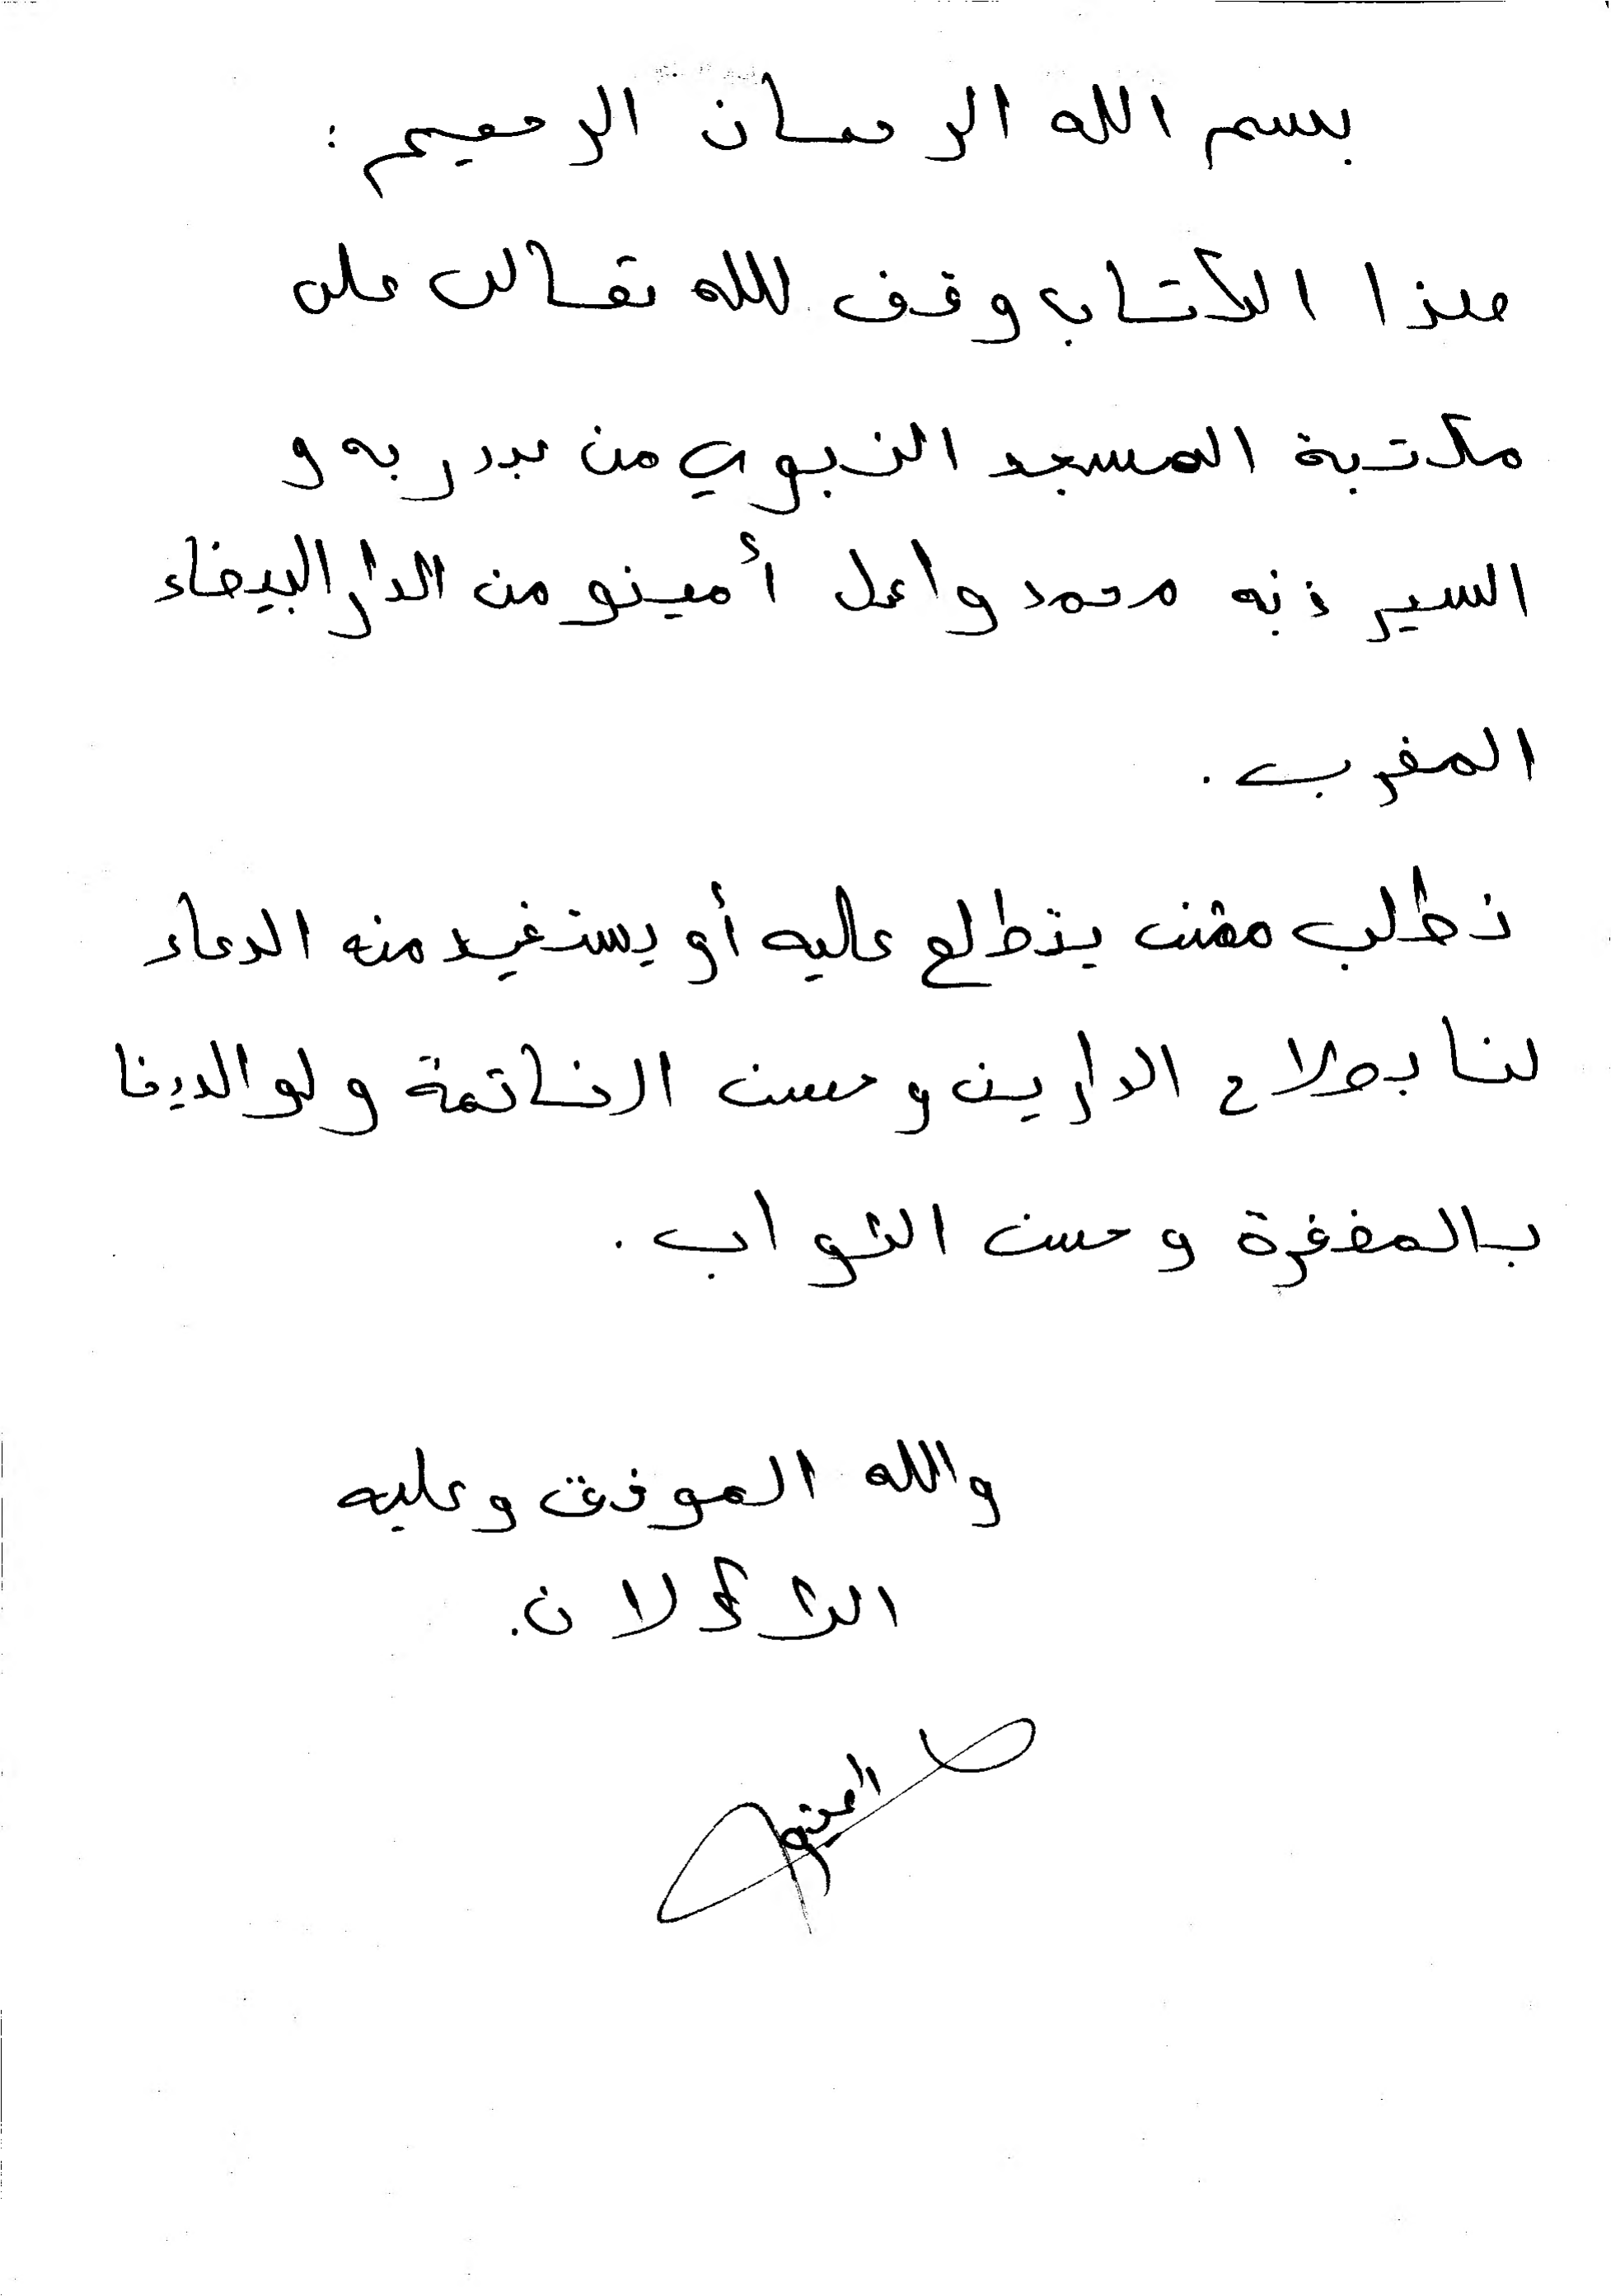 بسم الله الرحمان الرحيم :
هذا الكتاب وقف لله تعالى على
مكتبة المسجد النبوي من عبد ربه و
السير ذنبه محمد وائل أمينو من الدار البيضاء
المغرب .
نطلب ممن يطلع عليه أو يستفيد منه الدعاء
لنا بصلاح الدارين وحسن الخاتمة ولوالدينا
بالمغفرة وحسن الثواب .
والله الموفق وعليه
التكلان .